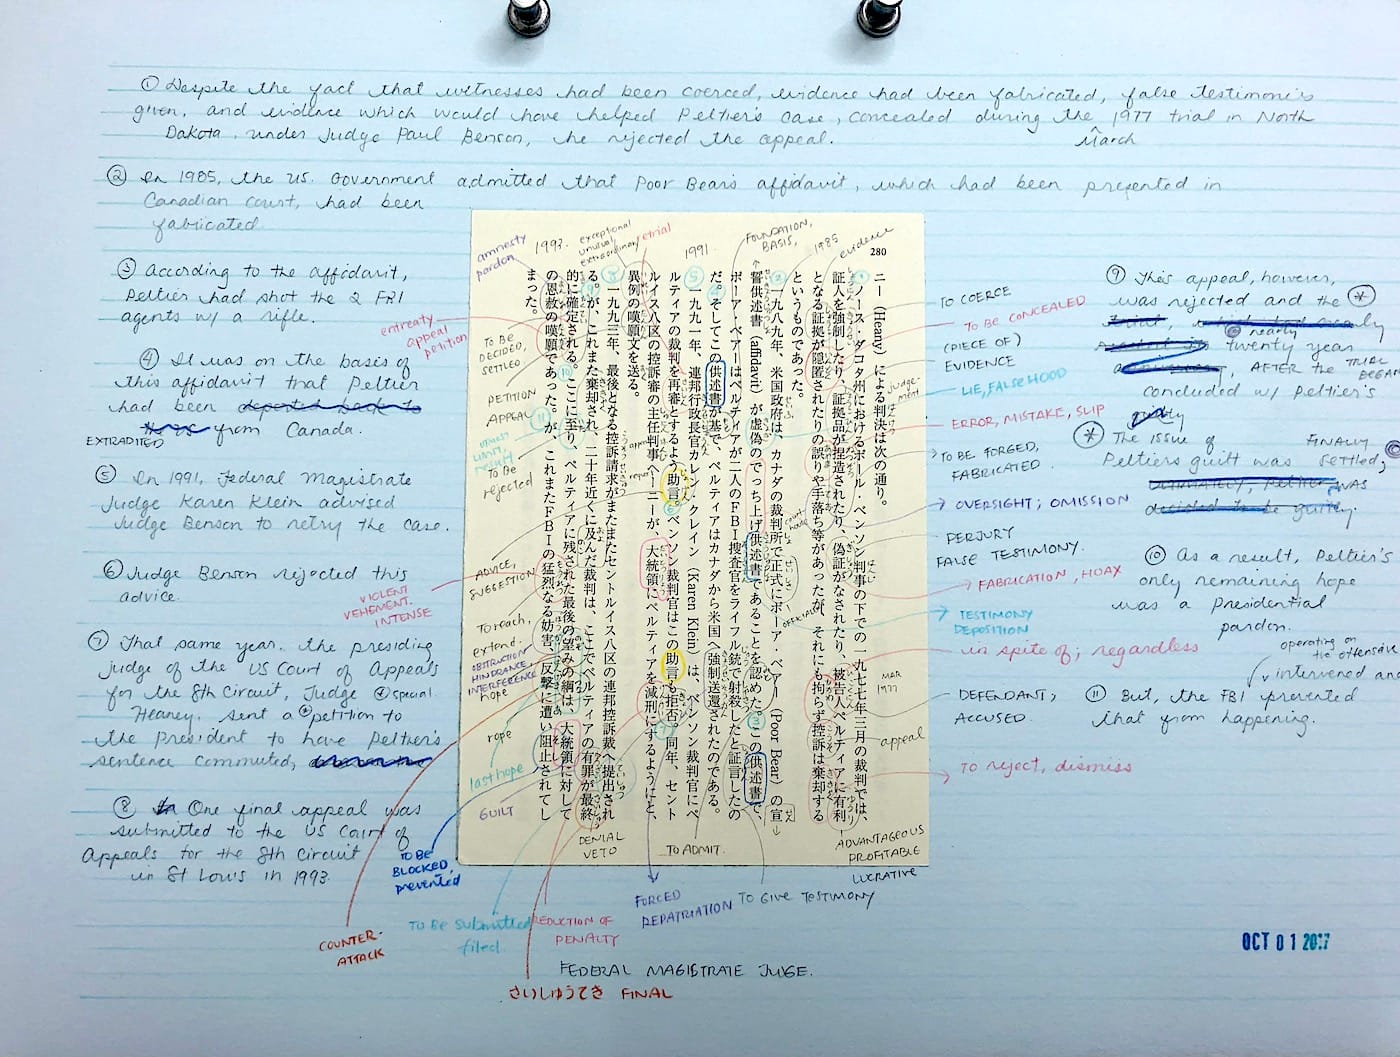 ① Despite the fact that witnesses had been coerced, evidence had been fabricated, false testimonies
given, and evidence which would have helped Peltier's case, concealed during the 1977 trial in North
March
Dakota under Judge Paul Benson, he rejected the appeal.
② In 1985, the U.S. Government admitted that Poor Bear's affidavit, which had been presented in
Canadian court, had been
fabricated.
③ According to the affidavit,
Peltier had shot the 2 FBI
agents w/ a rifle.
④ It was on the basis of
this affidavit that Peltier
had been deported back to
EXTRADITED
from Canada.
⑤ In 1991, Federal Magistrate
Judge Karen Klein advised
Judge Benson to retry the case.
⑥ Judge Benson rejected this
advice.
⑦ That same year, the presiding
judge of the US Court of Appeals
for the 8th Circuit, Judge
special
Heaney, sent a petition to
the President to have Peltier's
sentence commuted,
⑧ One final appeal was
submitted to the US Court of
Appeals for the 8th Circuit
in St Louis in 1993.
280
ニー(Heany)による判決は次の通り。
「ノース・ダコタ州におけるポール・ベンソン判事の下での一九七七年三月の裁判では、
証人を強制したり、証拠品が捏造されたり、偽証がなされたり、被告人ペルティアに有利
となる証拠が隠匿されたりの誤りや手落ち等があったが、それにも拘らず控訴は棄却する
というものであった。
一九八九年、米国政府は、カナダの裁判所で正式にポーア・ベアー(Poor Bear)の宣
誓供述書(affidavit)が虚偽のでっち上げ供述書であることを認めた。この供述書で、
ポーア・ベアーはペルティアが二人のFBI捜査官をライフル銃で射殺したと証言したの
だ。そしてこの供述書が基で、ペルティアはカナダから米国へ強制送還されたのである。
一九九一年、連邦行政長官カレイン・クレイン(Karen Klein)は、ベンソン裁判官にペ
ルティアの裁判を再審とするよう助言。ベンソン裁判官はこの助言も拒否。同年、セント
ルイス八区の控訴審の主任判事ヘーニーが、大統領にペルティアを減刑にするようにと、
異例の嘆願文を送る。
一九九三年、最後となる控訴請求がまたまたセントルイス八区の連邦控訴裁へ提出され
る。が、これまた棄却され、二十年近くに及んだ裁判は、ここでペルティアの有罪が最終
的に確定される。ここに至り、ペルティアに残された最後の望みの綱は、大統領に対して
の恩赦の嘆願であった。が、これまたFBIの猛烈なる妨害、反撃に遭い阻止されてし
まった。
1993.
1991
1985
evidence
FOUNDATION,
BASIS,
retrial
exceptional
unusual,
extraordinary
amnesty
pardon
entreaty
appeal
petition
To BE
DECIDED,
SETTLED
PETITION
APPEAL
To be
rejected
ADVICE,
SUGGESTION
VIOLENT
VEHEMENT.
INTENSE
To reach,
extend.
OBSTRUCTION
HINDRANCE
INTERFERENCE
hope
rope
last hope
GUILT
TO BE
BLOCKED,
prevented
COUNTER-
ATTACK
To be submitted
filed.
REDUCTION OF
PENALTY
DENIAL
VETO
TO ADMIT.
FORCED
REPATRIATION
TO GIVE TESTIMONY
ADVANTAGEOUS
PROFITABLE
LUCRATIVE
FEDERAL MAGISTRATE JUDGE.
さいしゅうてき FINAL
TO COERCE
TO BE CONCEALED
(PIECE OF)
EVIDENCE
judge-
ment
LIE, FALSEHOOD
ERROR, MISTAKE, SLIP
TO BE FORGED,
FABRICATED.
OVERSIGHT; OMISSION
PERJURY
FALSE TESTIMONY.
FABRICATION, HOAX
TESTIMONY
DEPOSITION
in spite of; regardless
MAR
1977
DEFENDANT,
ACCUSED.
appeal
TO reject, dismiss
⑨ This appeal, however,
was rejected and the
nearly
twenty year
AFTER the TRIAL BEGAN
concluded w/ Peltier's
guilty
The issue of
FINALLY
Peltier's guilt was SETTLED,
⑩ As a result, Peltier's
only remaining hope
was a presidential
pardon.
operating on
the offensive
intervened and
⑪ But, the FBI prevented
that from happening.
OCT 01 2017